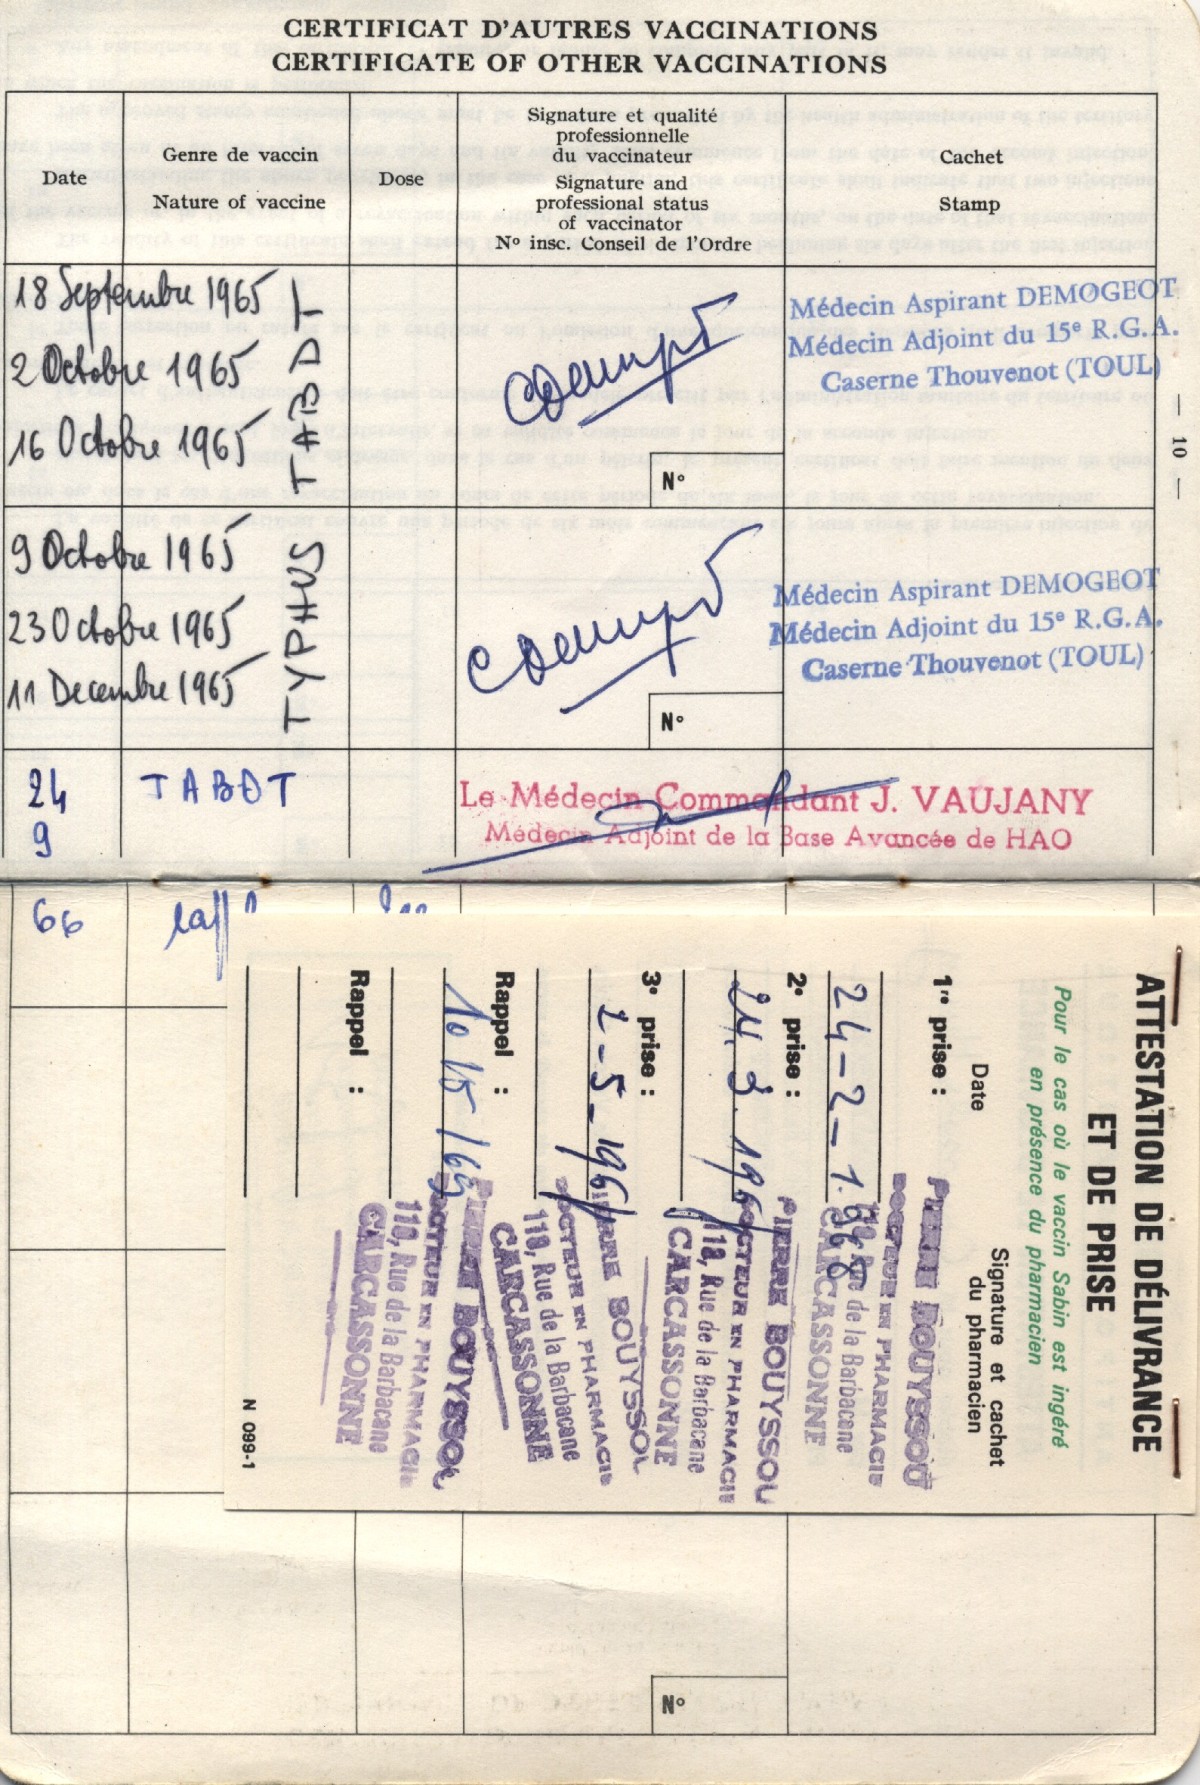 CERTIFICAT D'AUTRES VACCINATIONS
CERTIFICATE OF OTHER VACCINATIONS
Date
Genre de vaccin
Nature of vaccine
Dose
Signature et qualité
professionnelle
du vaccinateur
Signature and
professional status
of vaccinator
N° insc. Conseil de l'Ordre
Cachet
Stamp
18 Septembre 1965
2 Octobre 1965
16 Octobre 1965
TABDT
Médecin Aspirant DEMOGEOT
Médecin Adjoint du 15e R.G.A.
Caserne Thouvenot (TOUL)
N°
— 10 —
9 Octobre 1965
23 Octobre 1965
11 Decembre 1965
TYPHUS
Médecin Aspirant DEMOGEOT
Médecin Adjoint du 15e R.G.A.
Caserne Thouvenot (TOUL)
N°
24
9
66
TABDT
Le Médecin Commandant J. VAUJANY
Médecin Adjoint de la Base Avancée de HAO
ATTESTATION DE DÉLIVRANCE
ET DE PRISE
Pour le cas où le vaccin Sabin est ingéré
en présence du pharmacien
Date
Signature et cachet
du pharmacien
1re prise :
24-2-1968
PIERRE BOUYSSOU
DOCTEUR EN PHARMACIE
118, Rue de la Barbacane
CARCASSONNE
2e prise :
24.3.196
PIERRE BOUYSSOU
DOCTEUR EN PHARMACIE
118, Rue de la Barbacane
CARCASSONNE
3e prise :
2-5-196
PIERRE BOUYSSOU
DOCTEUR EN PHARMACIE
118, Rue de la Barbacane
CARCASSONNE
Rappel :
PIERRE BOUYSSOU
DOCTEUR EN PHARMACIE
118, Rue de la Barbacane
CARCASSONNE
Rappel :
N 099-1
N°